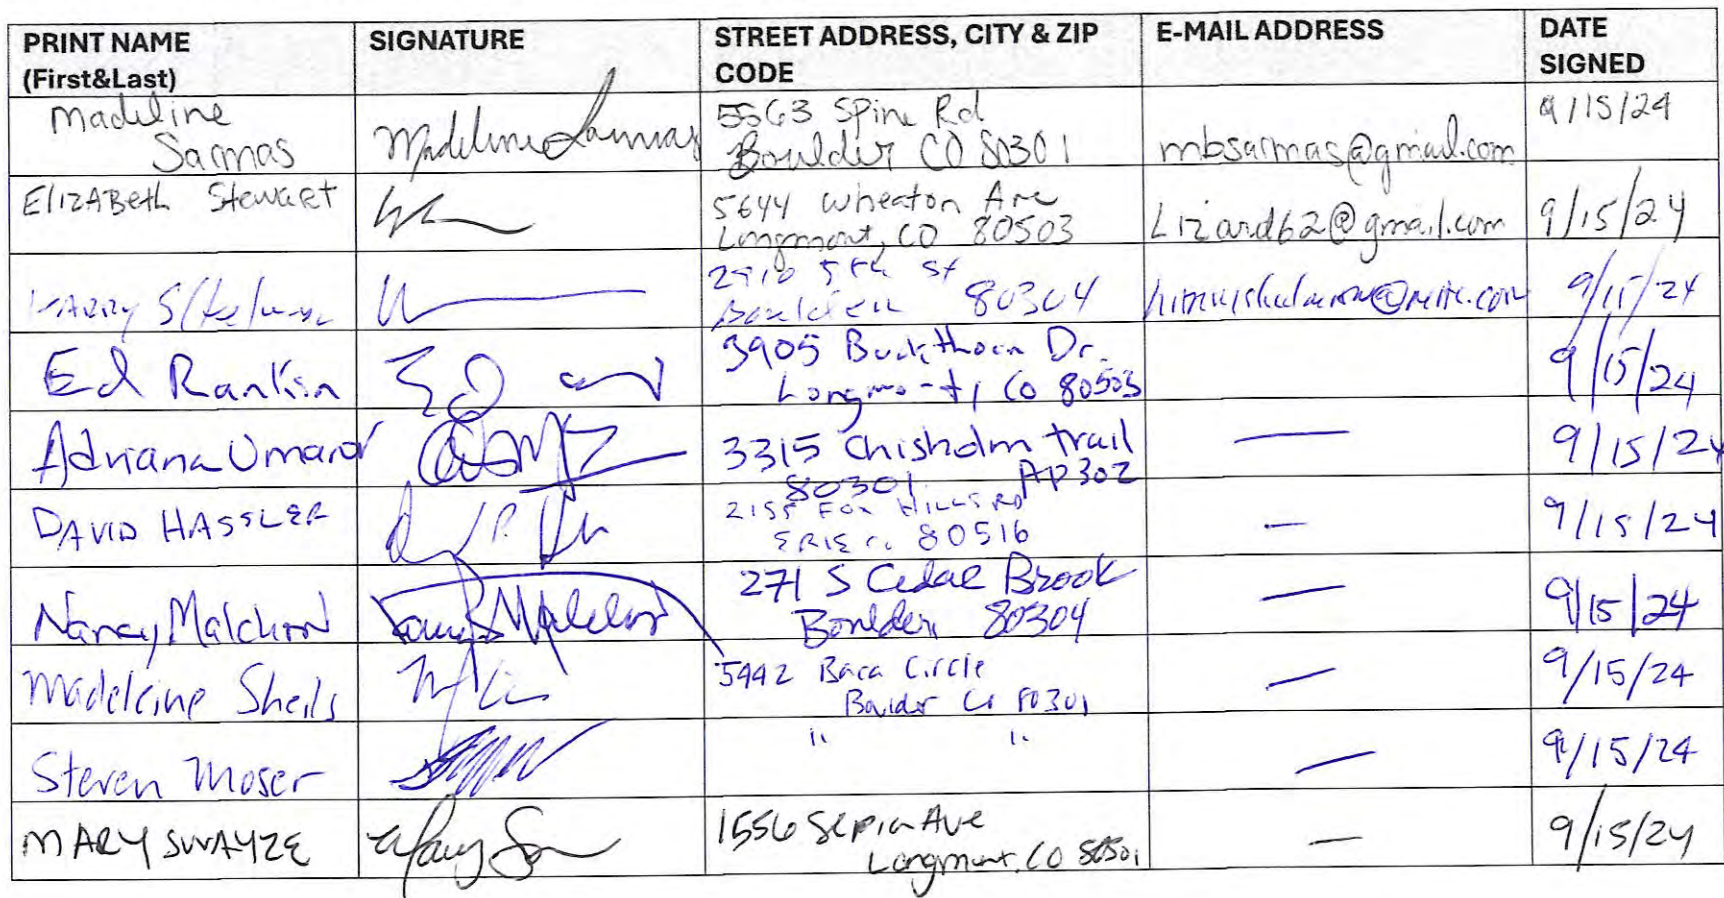 PRINT NAME (First&Last) SIGNATURE STREET ADDRESS, CITY & ZIP CODE E-MAIL ADDRESS DATE SIGNED
Madeline Sarmas Madeline Sarmas 5563 Spine Rd Boulder CO 80301 mbsarmas@gmail.com 9/15/24
ElizABeth Stewart 5644 Wheaton Ave Longmont, CO 80503 Lizard62@gmail.com 9/15/24
5th St Boulder 80304 9/15/24
Ed Rankin 3905 Buckthorn Dr. Longmont, CO 80503 9/15/24
Adriana Umana 3315 Chisholm trail 80301 AP302 — 9/15/24
DAVID HASSLER 2155 FOX HILLS RD ERIE 80516 — 9/15/24
Nancy Malchow 271 S Cedar Brook Boulder 80304 — 9/15/24
Madeleine Sheils 5442 Baca Circle Boulder Co 80301 — 9/15/24
Steven Moser " " — 9/15/24
MARY SWAYZE 1556 Sepia Ave Longmont, CO 80501 — 9/15/24